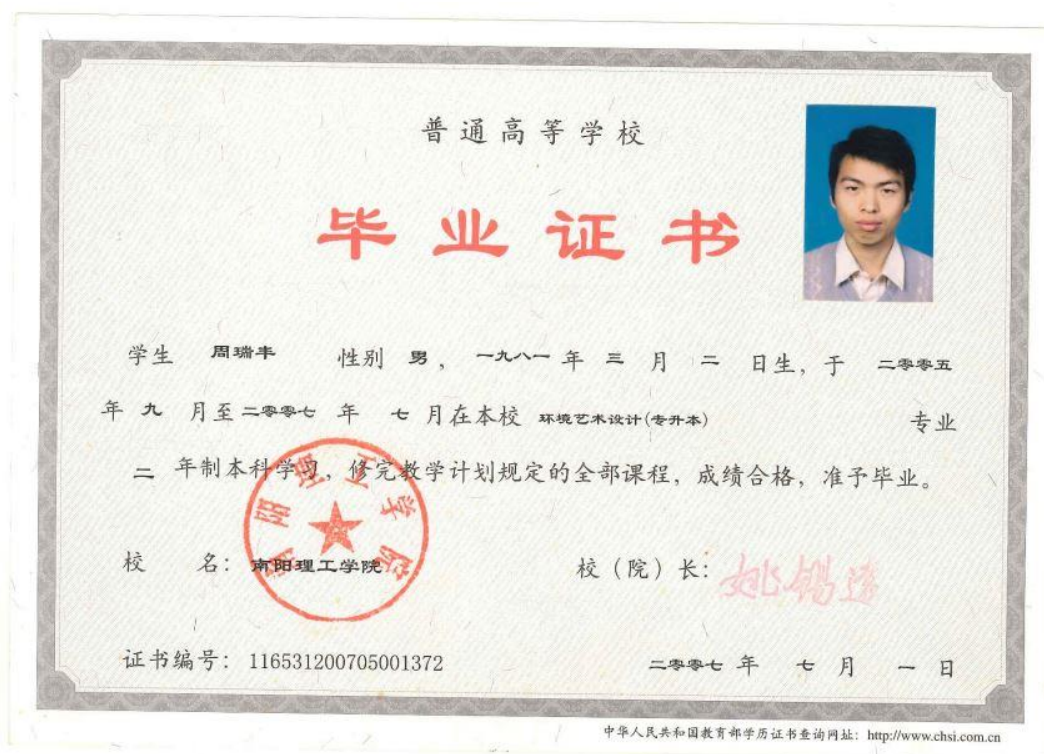 普通高等学校
毕业证书
学生 周瑞丰 性别 男，一九八一 年 三 月 二 日生，于 二零零五
年 九 月至 二零零七 年 七 月在本校 环境艺术设计(专升本) 专业
二 年制本科学习，修完教学计划规定的全部课程，成绩合格，准予毕业。
南阳理工学院
校 名：南阳理工学院 校（院）长：姚锡远
证书编号：116531200705001372 二零零七 年 七 月 一 日
中华人民共和国教育部学历证书查询网址：http://www.chsi.com.cn